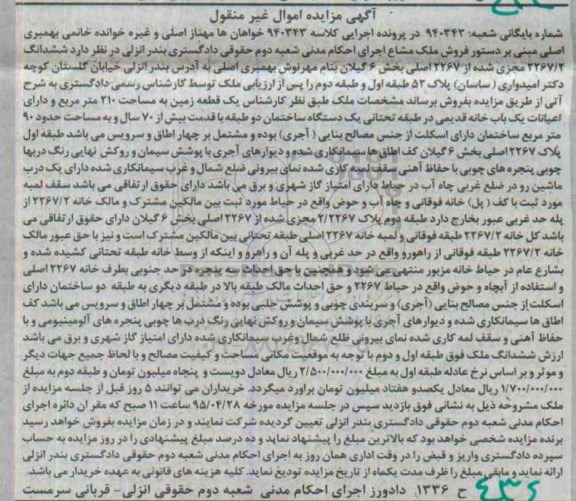 آگهی مزایده اموال غیر منقول
شماره بایگانی شعبه: ۹۴۰۳۴۳ در پرونده اجرایی کلاسه ۹۴۰۳۴۳ خواهان ها مهناز اصلی و غیره خوانده خانمی بهمبری
اصلی مبنی بر دستور فروش ملک مشاع اجرای احکام مدنی شعبه دوم حقوقی دادگستری بندر انزلی در نظر دارد ششدانگ
۲۲۶۷/۲ مجزی شده از ۲۲۶۷ اصلی بخش ۶ گیلان بنام مهرنوش بهمبری اصلی به آدرس بندر انزلی خیابان گلستان کوچه
دکتر امیدواری ( ساسان) پلاک ۵۳ طبقه اول و طبقه دوم را پس از ارزیابی ملک توسط کارشناس رسمی دادگستری به شرح
آتی از طریق مزایده بفروش برساند مشخصات ملک طبق نظر کارشناس یک قطعه زمین به مساحت ۲۱۰ متر مربع و دارای
اعیانات یک باب خانه قدیمی در طبقه تحتانی یک دستگاه ساختمان دو طبقه با قدمت بیش از ۷۰ سال و به مساحت حدود ۹۰
متر مربع ساختمان دارای اسکلت از جنس مصالح بنایی ( آجری) بوده و مشتمل بر چهار اطاق و سرویس می باشد طبقه اول
پلاک ۲۲۶۷ اصلی بخش ۶ گیلان کف اطاق ها سیمانکاری شده و دیوارهای آجری با پوشش سیمان و روکش نهایی رنگ دربها
چوبی پنجره های چوبی با حفاظ آهنی سقف لمبه کاری شده نمای بیرونی ضلع شمال و غرب سیمانکاری شده دارای یک درب
ماشین رو در ضلع غربی چاه آب در حیاط دارای امتیاز گاز شهری و برق می باشد دارای حقوق ارتفاقی می باشد سقف لمبه
مورد ثبت با کف ( پل) خانه فوقانی و چاه آب و حوض واقع در حیاط مورد ثبت بین مالکین مشترک و مالک خانه ۲۲۶۷/۲ از
پله حد غربی عبور بخارج دارد طبقه دوم پلاک ۲/۲۲۶۷ مجزی شده از ۲۲۶۷ اصلی بخش ۶ گیلان دارای حقوق ارتفاقی می
باشد کل خانه ۲۲۶۷/۲ طبقه فوقانی و لمبه خانه ۲۲۶۷ اصلی طبقه تحتانی بین مالکین مشترک است و نیز با حق عبور مالک
خانه ۲۲۶۷/۲ طبقه فوقانی از راهرو واقع در حد غربی و پله آن و راهرو و اینکه از وسط خانه طبقه تحتانی کشیده شده و
بشارع عام در حیاط خانه مزبور منتهی می شود و همچنین با حق احداث سه پنجره در حد جنوبی بطرف خانه ۲۲۶۷ اصلی
و استفاده از آبچاه و حوض واقع در حیاط ۲۲۶۷ و حق احداث مالک طبقه بالا در طبقه دیگری به طبقه دو ساختمان دارای
اسکلت از جنس مصالح بنایی (آجری) و سربندی چوبی و پوشش حلبی بوده و مشتمل بر چهار اطاق و سرویس می باشد کف
اطاق ها سیمانکاری شده و دیوارهای آجری با پوشش سیمان و روکش نهایی رنگ درب ها چوبی پنجره های آلومینیومی و با
حفاظ آهنی و سقف لمه کاری شده نمای بیرونی ظلع شمال وغرب سیمانکاری شده دارای امتیاز گاز شهری و برق می باشد
ارزش ششدانگ ملک فوق طبقه اول و دوم با توجه به موقعیت مکانی مساحت و کیفیت مصالح و با لحاظ جمیع جهات دیگر
و موثر و بر اساس نرخ عادله طبقه اول به مبلغ ۲/۵۰۰/۰۰۰/۰۰۰ ریال معادل دویست و پنجاه میلیون تومان و طبقه دوم به مبلغ
۱/۷۰۰/۰۰۰/۰۰۰ ریال معادل یکصدو هفتاد میلیون تومان براورد میگردد. خریداران می توانند ۵ روز قبل از جلسه مزایده از
ملک مشروحه ذیل به نشانی فوق بازدید سپس در جلسه مزایده مورخه ۹۵/۰۴/۲۸ ساعت ۱۱ صبح که مقر ان دائره اجرای
احکام مدنی شعبه دوم حقوقی دادگستری بندر انزلی تعیین گردیده شرکت نمایند و در زمان مزایده بفروش خواهد رسید
برنده مزایده شخصی خواهد بود که بالاترین مبلغ را پیشنهاد نماید و ده درصد مبلغ پیشنهادی را در روز مزایده به حساب
سپرده دادگستری واریز و قبض را در وقت اداری همان روز به اجرای احکام مدنی شعبه دوم حقوقی دادگستری بندر انزلی
ارائه نماید و مابقی مبلغ را ظرف مدت یکماه از تاریخ مزایده تودیع نماید. کلیه هزینه های قانونی به عهده خریدار می باشد.
ح ظ ۱۳۳۶. دادورز اجرای احکام مدنی شعبه دوم حقوقی انزلی- قربانی سرمست